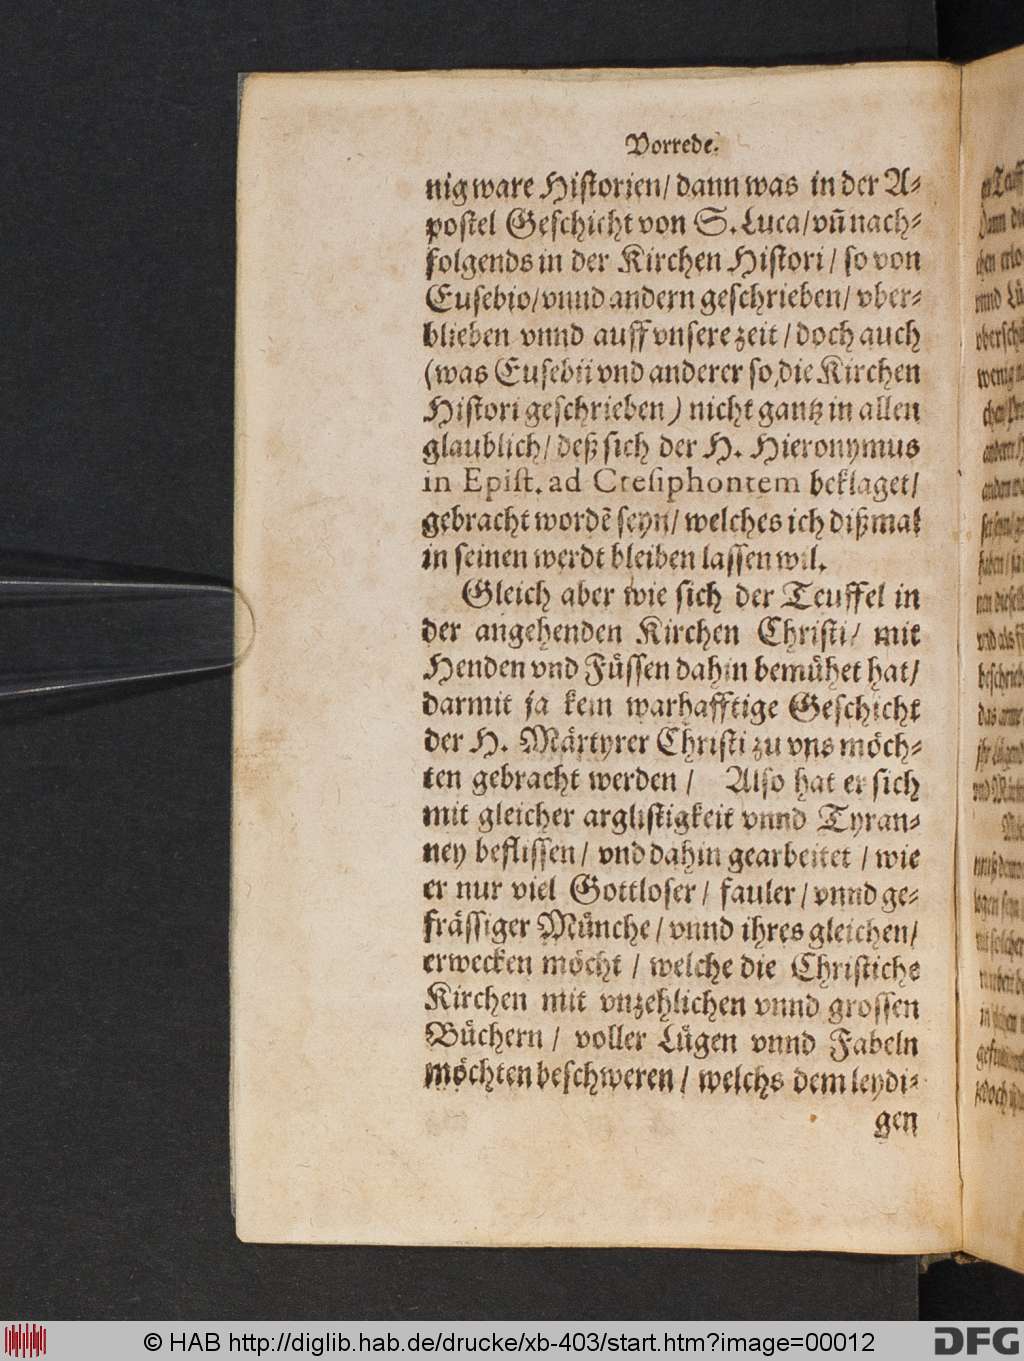 Vorrede.
nig ware Historien/ dann was in der A-
postel Geschicht von S. Luca/ vñ nach-
folgends in der Kirchen Histori/ so von
Eusebio/ vnnd andern geschrieben/ vber-
blieben vnnd auff vnsere zeit/ doch auch
(was Eusebii vnd anderer so die Kirchen
Histori geschrieben) nicht gantz in allen
glaublich/ deß sich der H. Hieronymus
in Epist. ad Ctesiphontem beklaget/
gebracht wordē seyn/ welches ich dißmal
in seinen werdt bleiben lassen wil.
Gleich aber wie sich der Teuffel in
der angehenden Kirchen Christi/ mit
Henden vnd Füssen dahin bemühet hat/
darmit ja kein warhafftige Geschicht
der H. Märtyrer Christi zu vns möch-
ten gebracht werden/ Also hat er sich
mit gleicher arglistigkeit vnnd Tyran-
ney beflissen/ vnd dahin gearbeitet/ wie
er nur viel Gottloser/ fauler/ vnnd ge-
frässiger Münche/ vnnd ihres gleichen/
erwecken möcht/ welche die Christiche
Kirchen mit vnzehlichen vnnd grossen
Büchern/ voller Lügen vnnd Fabeln
möchten beschweren/ welchs dem leydi-
gen
© HAB http://diglib.hab.de/drucke/xb-403/start.htm?image=00012
DFG